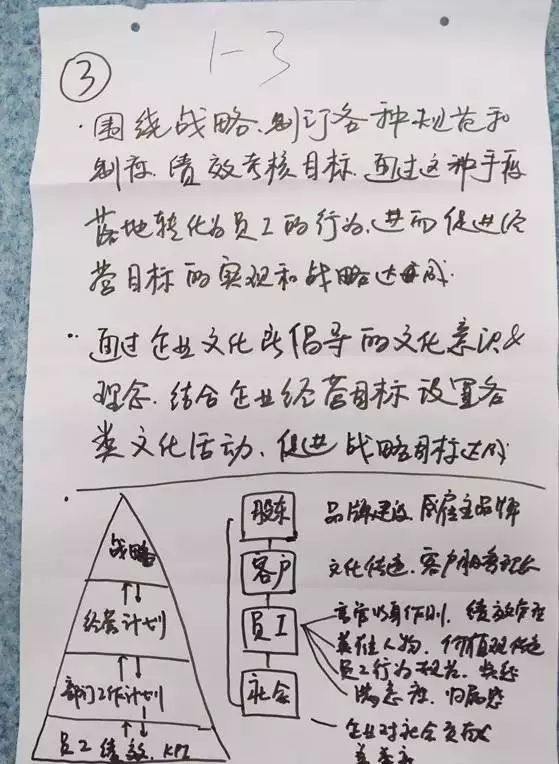 1-3
③
·围绕战略、制订各种规范和
制度、绩效考核目标、通过这种手段
落地转化为员工的行为、进而促进经
营目标的实现和战略达成.
·通过企业文化所倡导的文化意识&
理念、结合企业经营目标设置各
类文化活动、促进战略目标达成
战略
经营计划
部门工作计划
员工绩效、KPI
股东 品牌建设、雇主品牌
客户 文化传递、客户服务
员工 高管以身作则、绩效管理
人物、价值观传递
员工行为规范
满意度、归属感
社会 企业对社会贡献